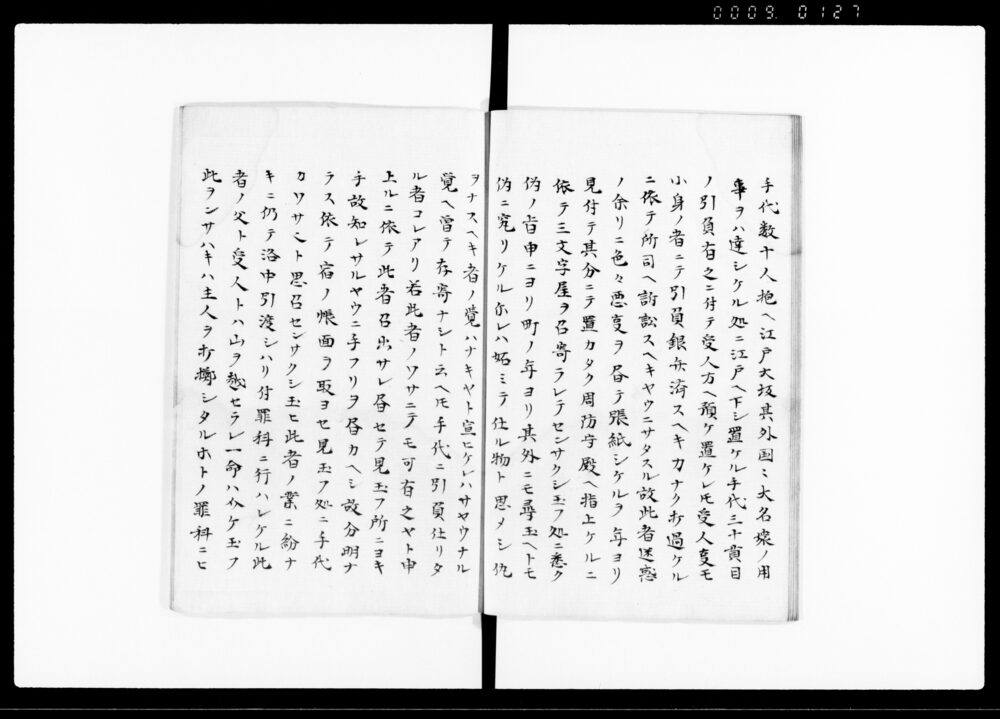 0009. 0127
手代数十人抱ヘ江戸大坂其外国ミ大名衆ノ用
事ヲハ達シケル処ニ江戸ヘ下シ置ケル手代三十貫目
ノ引負有之ニ付テ受人方ヘ預ケ置ケレ𪜈受人㕝モ
小身ノ者ニテ引負銀弁済スヘキカナク打過ケル
ニ依テ所司ヘ訴訟スヘキヤウニサタスル故此者迷惑
ノ余リニ色々悪㕝ヲ昼テ張紙シケルヲ年ヨリ
見付テ其分ニテ置カタク周防守殿ヘ指上ケルニ
依テ三文字屋ヲ召寄ラレテセンサクシ玉フ処ニ悉ク
偽ノ旨申ニヨリ町ノ年ヨリ其外ニモ尋玉ヘトモ
偽ニ究リケル尓レハ妬ミテ仕ル物ト思メシ仇
ヲナスヘキ者ノ覚ハナキヤト宣ヒケレハサヤウナル
覚ヘ曽テ存寄ナシト云ヘ𪜈手代ニ引負仕リタ
ル者コレアリ若此者ノワサニテモ可有之ヤト申
上ルニ依テ此者召出サレ昼セテ見玉フ所ニヨキ
手故知レサルヤウニ手フリヲ昼カヘシ故分明ナ
ラス依テ宿ノ帳面ヲ取ヨセ見玉フ処ニ手代
カワサミト思召センサクシ玉ヒ此者ノ業ニ紛ナ
キニ仍テ洛中引渡シハリ付罪科ニ行ハレケル此
者ノ父ト受人トハ山ヲ越セラレ一命ハ介ケ玉フ
此ヲンサハキハ主人ヲ打擲シタルホトノ罪科ニヒ